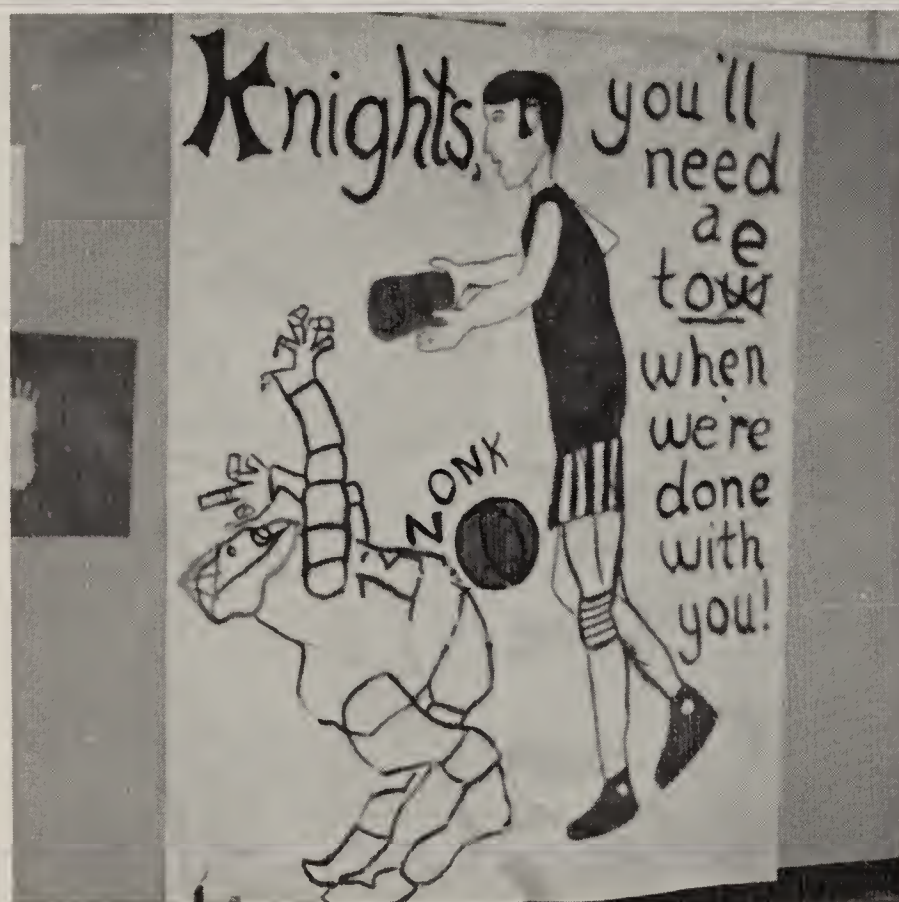 Knights,
you'll
need
a e
tow
when
we're
done
with
you!
ZONK